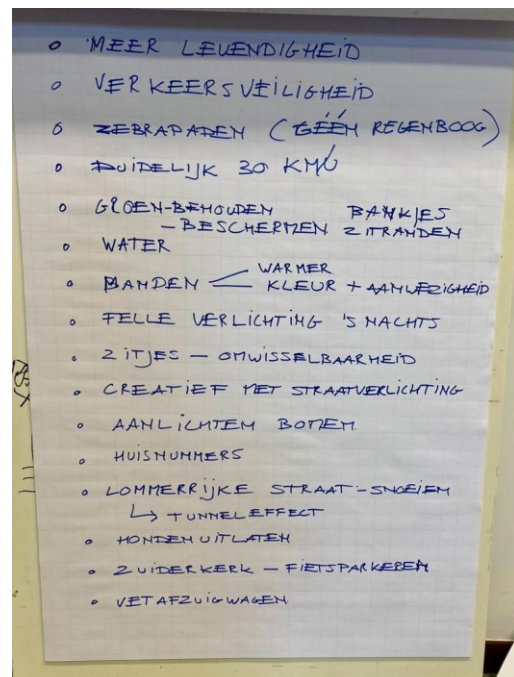 MEER LEVENDIGHEID
VERKEERSVEILIGHEID
ZEBRAPADEN (GÉÉN REGENBOOG)
DUIDELIJK 30 KMU
GROEN-BEHOUDEN BANKJES
- BESCHERMEN ZITRANDEN
WATER
WARMER
PANDEN KLEUR + AANWEZIGHEID
FELLE VERLICHTING 'S NACHTS
ZITJES - OMWISSELBAARHEID
CREATIEF MET STRAATVERLICHTING
AANLICHTEN BOMEN
HUISNUMMERS
LOMMERRIJKE STRAAT - SNOEIEN
↳ TUNNELEFFECT
HONDEN UITLATEN
ZUIDERKERK - FIETSPARKEREN
VETAFZUIGWAGEN